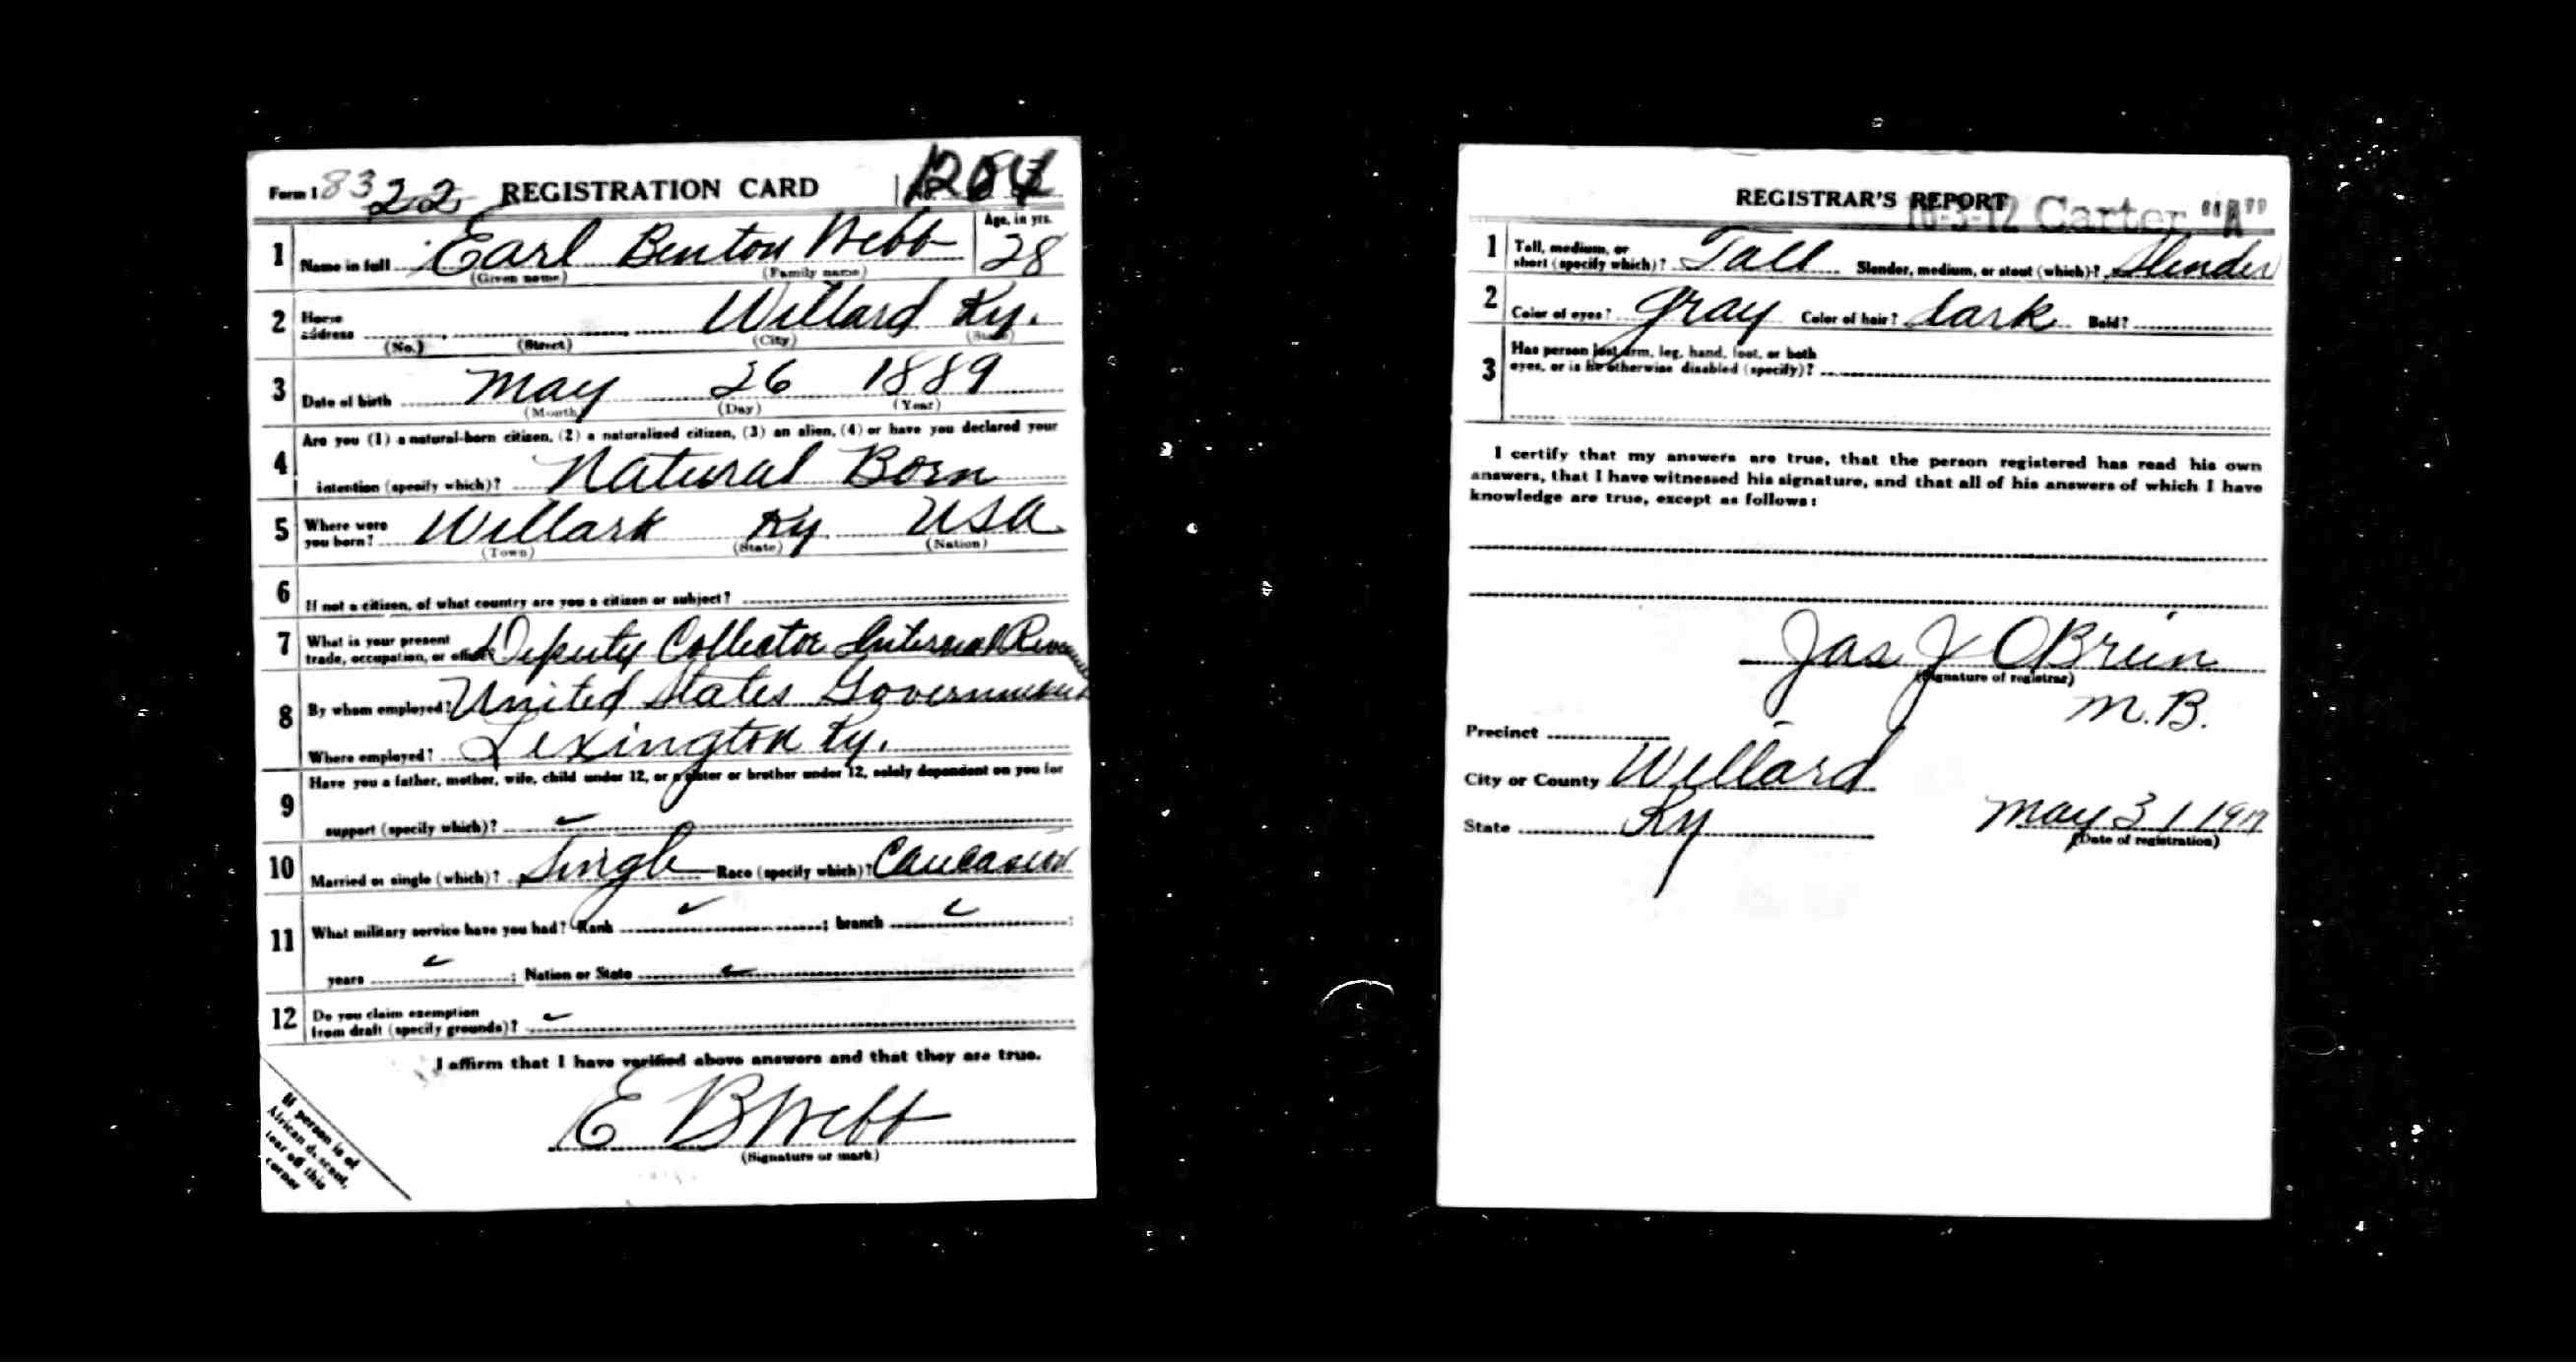 Form 1 8322 REGISTRATION CARD No.
1 Name in full Earl Benton Webb Age, in yrs. 28
(Given name) (Family name)
2 Home address Willard Ky.
(No.) (Street) (City) (State)
3 Date of birth May 26 1889
(Month) (Day) (Year)
4 Are you (1) a natural-born citizen, (2) a naturalized citizen, (3) an alien, (4) or have you declared your
intention (specify which)? Natural Born
5 Where were you born? Willard Ky. USA
(Town) (State) (Nation)
6 If not a citizen, of what country are you a citizen or subject?
7 What is your present trade, occupation, or office? Deputy Collector Internal Revenue
8 By whom employed? United States Government
Where employed? Lexington Ky.
9 Have you a father, mother, wife, child under 12, or a sister or brother under 12, solely dependent on you for
support (specify which)?
10 Married or single (which)? Single Race (specify which)? Caucasian
11 What military service have you had? Rank ; branch ;
years ; Nation or State
12 Do you claim exemption
from draft (specify grounds)?
I affirm that I have verified above answers and that they are true.
E B Webb
(Signature or mark)
If person is of
African descent,
tear off this
corner
REGISTRAR'S REPORT
Carter "A"
1 Tall, medium, or short (specify which)? Tall Slender, medium, or stout (which)? Slender
2 Color of eyes? gray Color of hair? dark Bald?
3 Has person lost arm, leg, hand, foot, or both
eyes, or is he otherwise disabled (specify)?
I certify that my answers are true, that the person registered has read his own
answers, that I have witnessed his signature, and that all of his answers of which I have
knowledge are true, except as follows:
Jas J OBrien
(Signature of registrar)
M.B.
Precinct
City or County Willard
State Ky May 31 1917
(Date of registration)